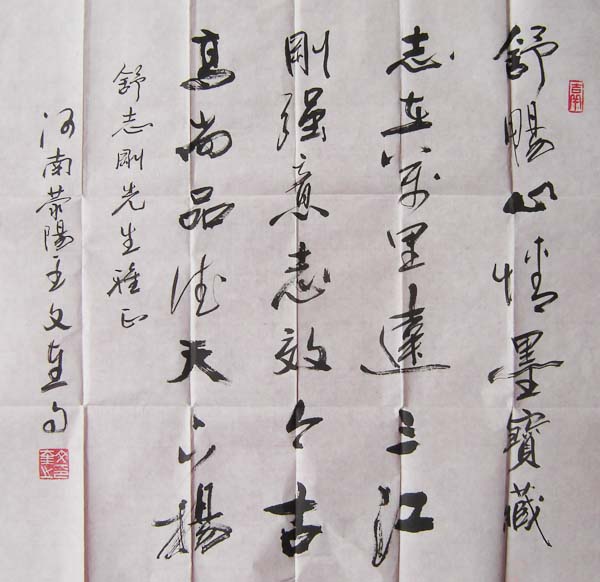 舒暢心情墨寶藏
志在萬里達三江
剛强意志效今古
高尚品德天下揚
舒志剛先生雅正
河南滎陽王文